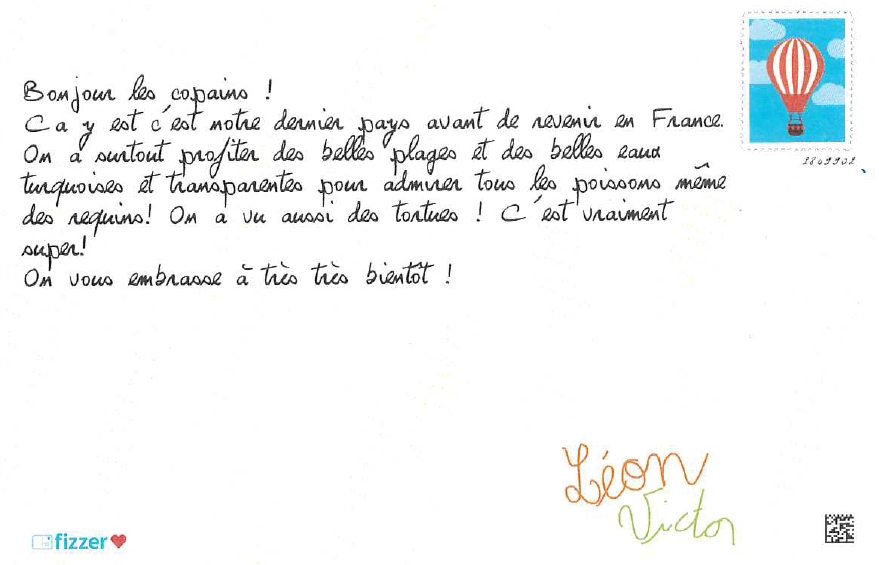 Bonjour les copains !
Ca y est c'est notre dernier pays avant de revenir en France.
On a surtout profiter des belles plages et des belles eaux
turquoises et transparentes pour admirer tous les poissons même
des requins! On a vu aussi des tortues ! C'est vraiment
super!
On vous embrasse à très très bientôt !
1809902
Léon
Victor
fizzer